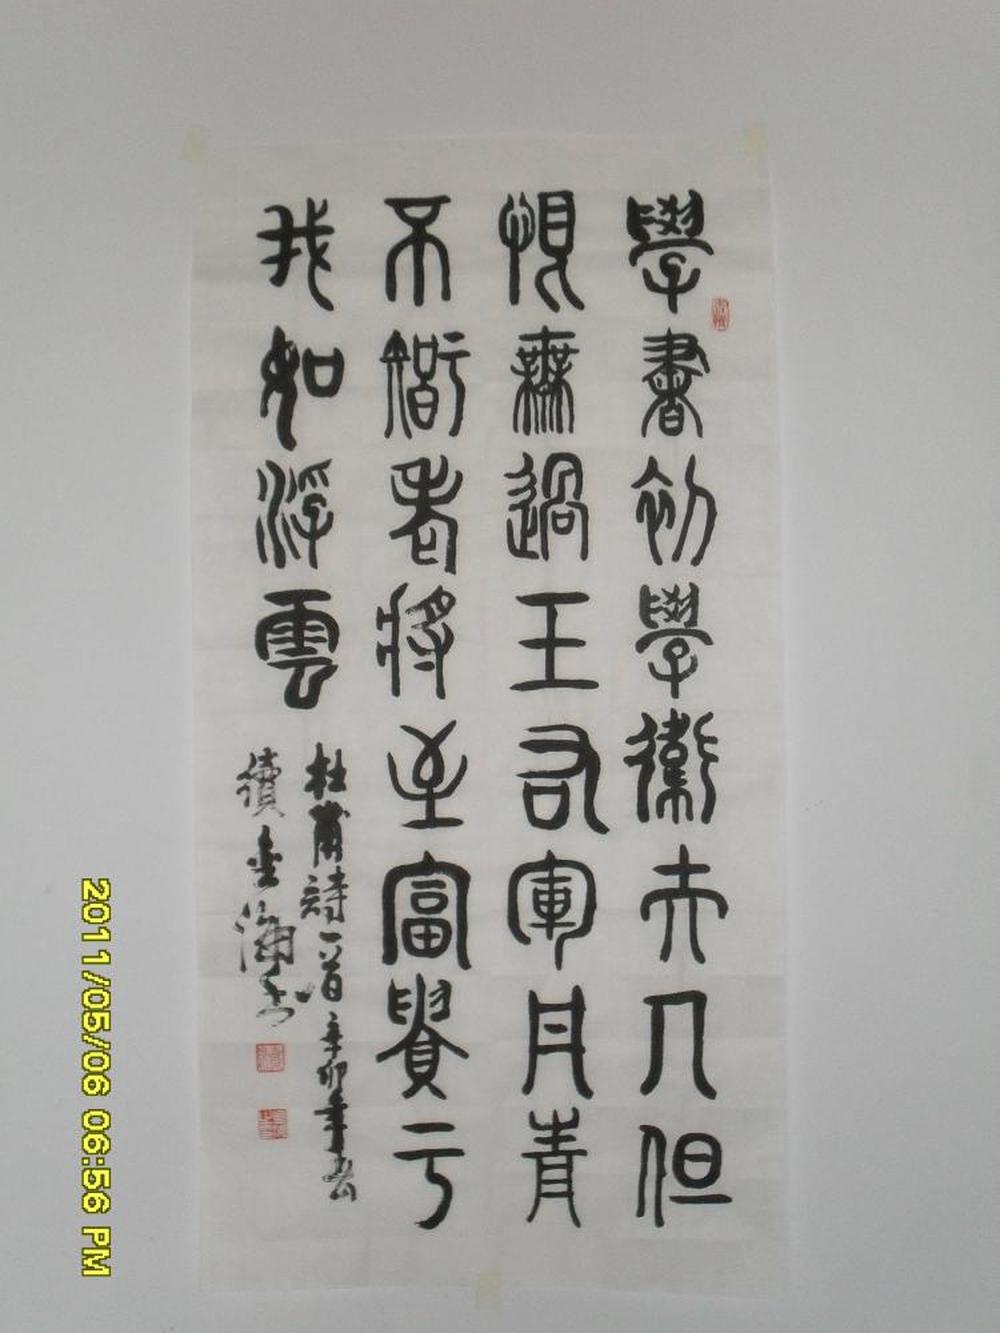 學書初學衛夫人但
恨無過王右軍丹青
不智老將至富貴于
我如浮雲
杜甫詩一首辛卯年春
續金海书
2011/05/06 06:56 PM